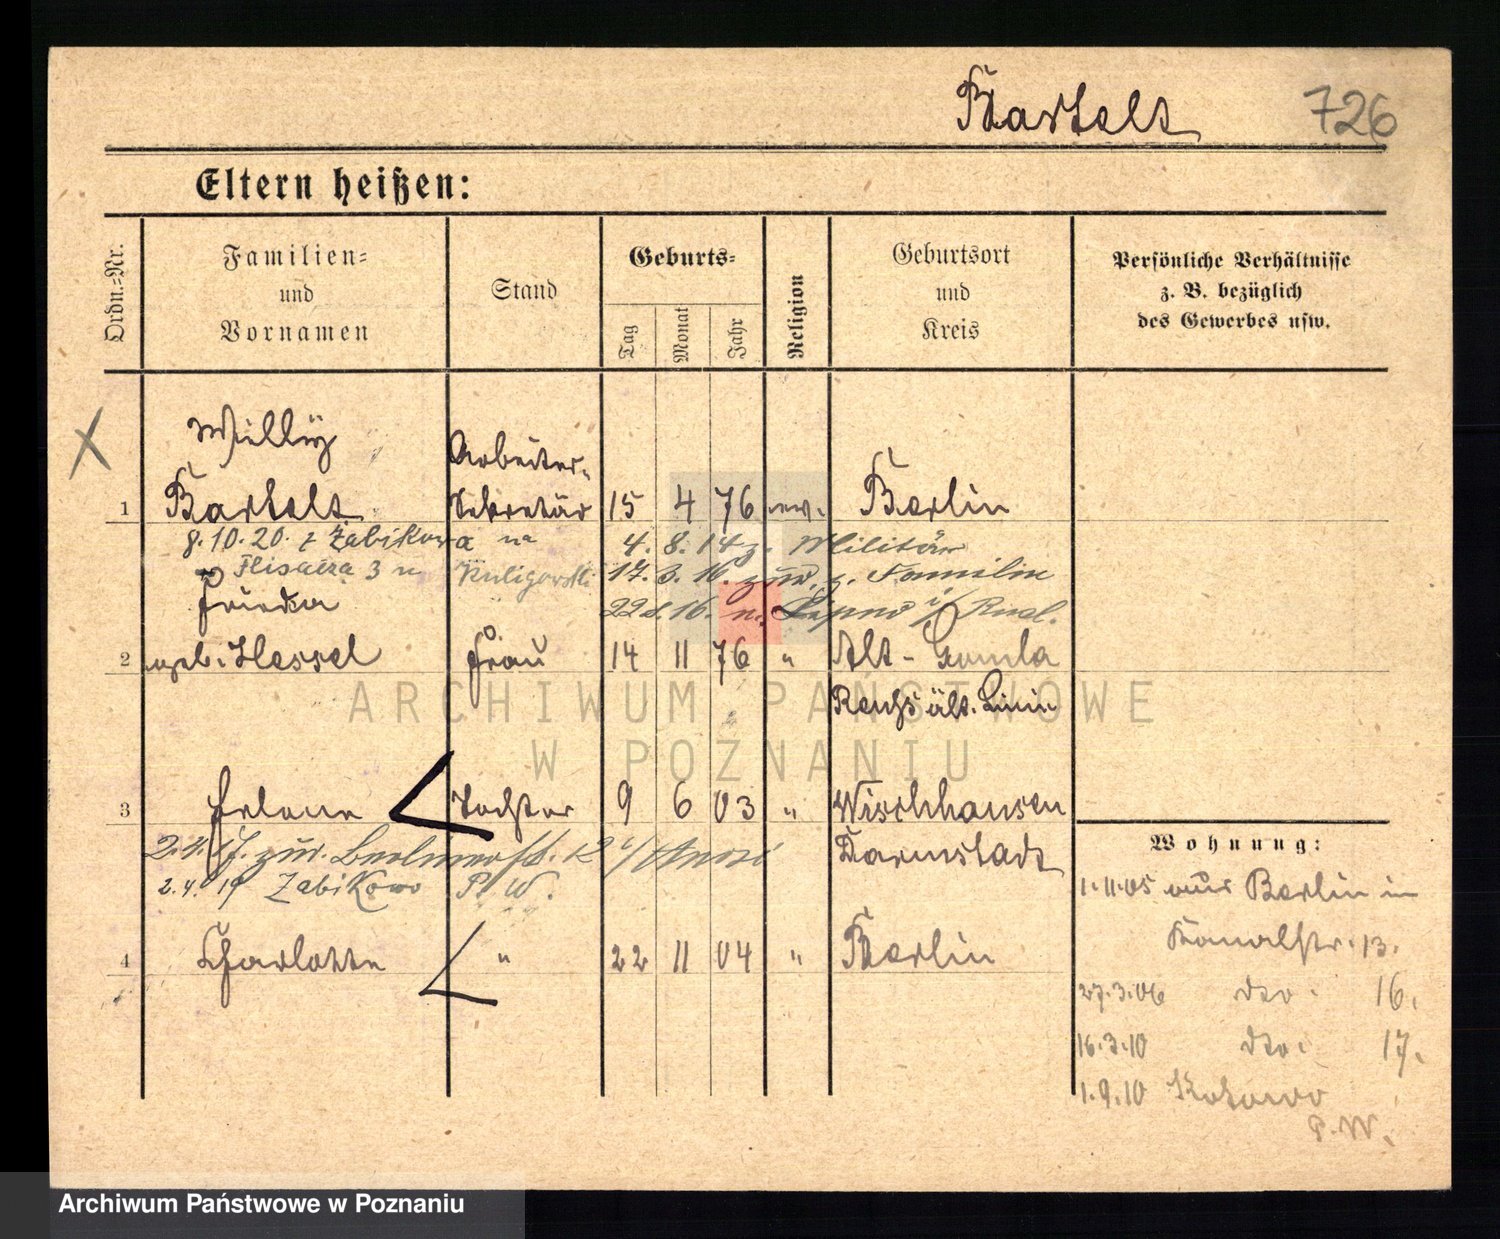 Bartelt 726
Eltern heißen:
Ordn.-Nr.
Familien-
und
Vornamen
Stand
Geburts-
Tag
Monat
Jahr
Religion
Geburtsort
und
Kreis
Persönliche Verhältnisse
z. B. bezüglich
des Gewerbes usw.
Willy
Arbeiter-
1 Bartelt Sekretär 15 4 76 ev. Berlin
8.10.20. z Żabikowa na
4. 8. 14 z. Militär
3 Kuligowski 17. 3. 16. zur. z. Familie
Frieda
16. n. Lipno i/ Rusl.
2 geb. Hessel Frau 14 11 76 " Alt-Gomla
Reuß ält. Linie
ARCHIWUM PAŃSTWOWE
W POZNANIU
3 Helene Tochter 9 6 03 " Wischhausen
Darmstadt
zur.
2.4.19 Zabikowo P. W.
4 Charlotte " 22 11 04 " Berlin
Wohnung:
1.11.05 aus Berlin in
Kanalstr. 13.
27.3.06 dto. 16.
16.3.10 dto. 17.
1.9.10 Kotowo
P. W.
Archiwum Państwowe w Poznaniu